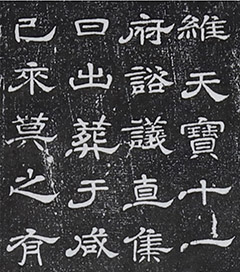 維天寶十一
府諮議直集
日出葬于咸
已來莫之有